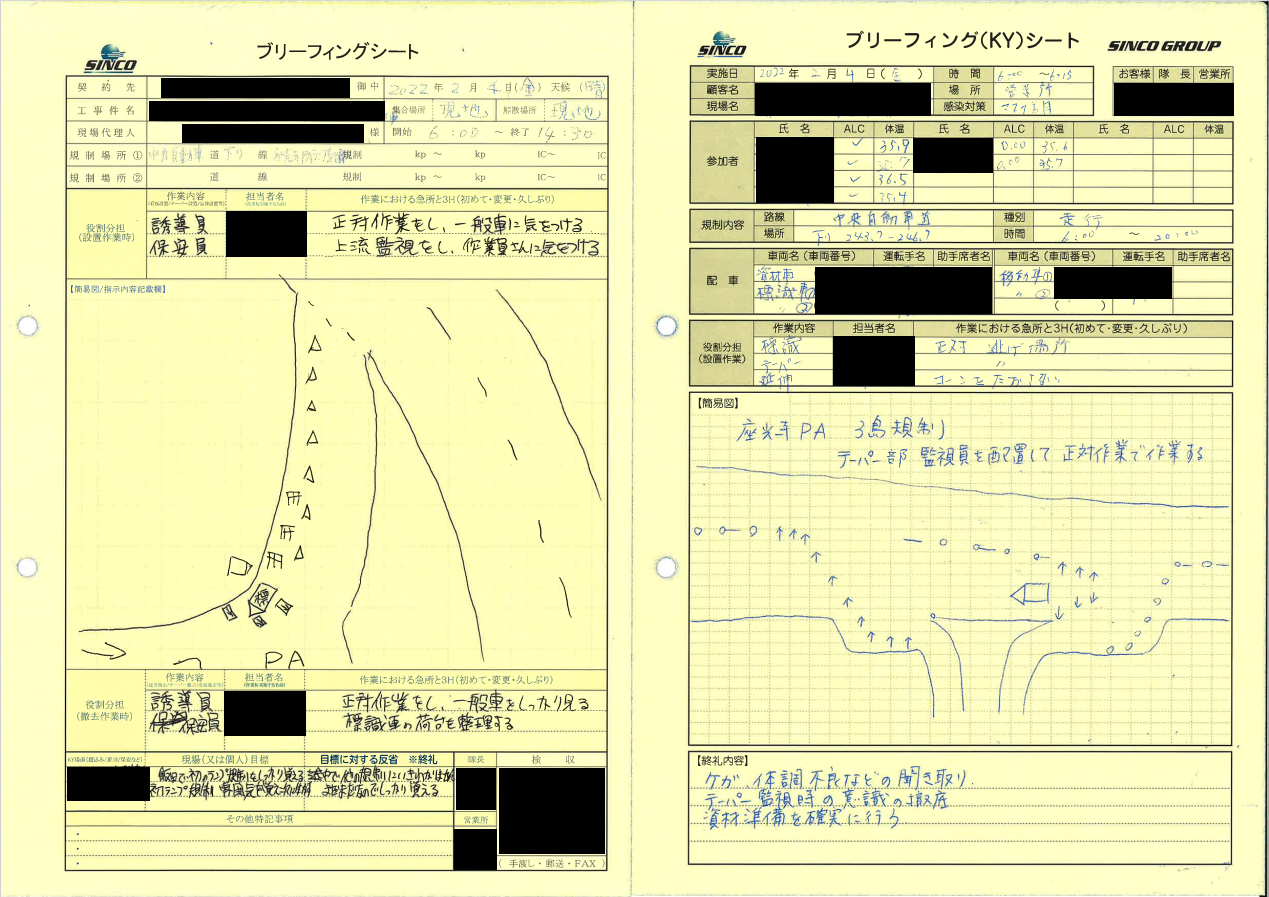 SINCO
ブリーフィングシート
契約先 御中 2022年 2月 4日(金) 天候 (晴)
工事件名 集合場所 現地 解散場所 現地
現場代理人 様 開始 6:00 ～ 終了 14:30
規制場所① 道 下り 線 規制 kp ～ kp IC～ IC
規制場所② 道 線 規制 kp ～ kp IC～ IC
役割分担
(設置作業時)
作業内容 担当者名 作業における急所と3H(初めて・変更・久しぶり)
誘導員 正対作業をし、一般車に気をつける
保安員 上流監視をし、作業員さんに気をつける
【簡易図/指示内容記載欄】
標
PA
役割分担
(撤去作業時)
作業内容 担当者名 作業における急所と3H(初めて・変更・久しぶり)
誘導員 正対作業をし、一般車をしっかり見る
保安員 標識車の荷台を整理する
現場(又は個人)目標 目標に対する反省 ※終礼 隊長 検収
その他特記事項 営業所
・
・
・
(手渡し・郵送・FAX)
SINCO
ブリーフィング(KY)シート
SINCO GROUP
実施日 2022年 2月 4日(金) 時間 6:00 ～6:15
顧客名 場所 営業所
現場名 感染対策
お客様 隊長 営業所
参加者
氏名 ALC 体温 氏名 ALC 体温 氏名 ALC 体温
✓ 35.9 0.00 35.6
✓ 35.7 0.00 35.7
✓ 36.5
✓ 35.4
規制内容
路線 中央自動車道 種別 走行
場所 下り 243.7-246.7 時間 6:00 ～ 20:00
配車
車両名(車両番号) 運転手名 助手席者名 車両名(車両番号) 運転手名 助手席者名
資材車 移動車①
標識車① 〃 ②
〃 ② ( )
役割分担
(設置作業)
作業内容 担当者名 作業における急所と3H(初めて・変更・久しぶり)
標識 正対 逃げ場所
テーパー 〃
延伸 コーンをたおさない
【簡易図】
座光寺PA 3島規制
テーパー部 監視員を配置して正対作業で作業する
【終礼内容】
ケガ、体調不良などの聞き取り.
テーパー監視時の意識の徹底
資材準備を確実に行う